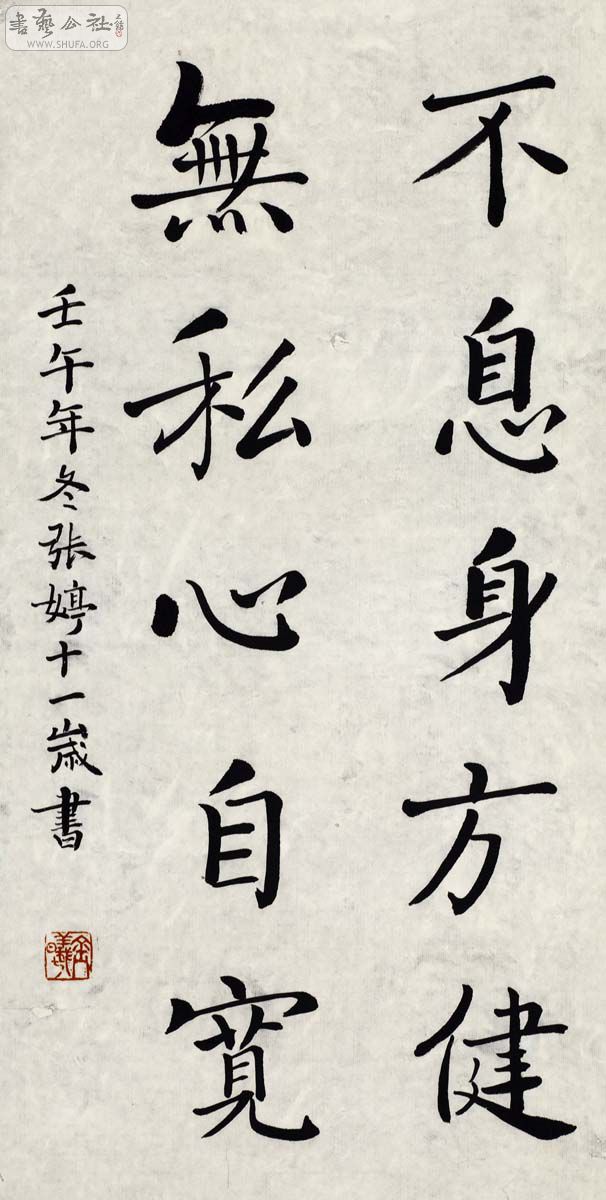 不息身方健
無私心自寬
壬午年冬張婷十一歲書
書藝公社
WWW.SHUFA.ORG